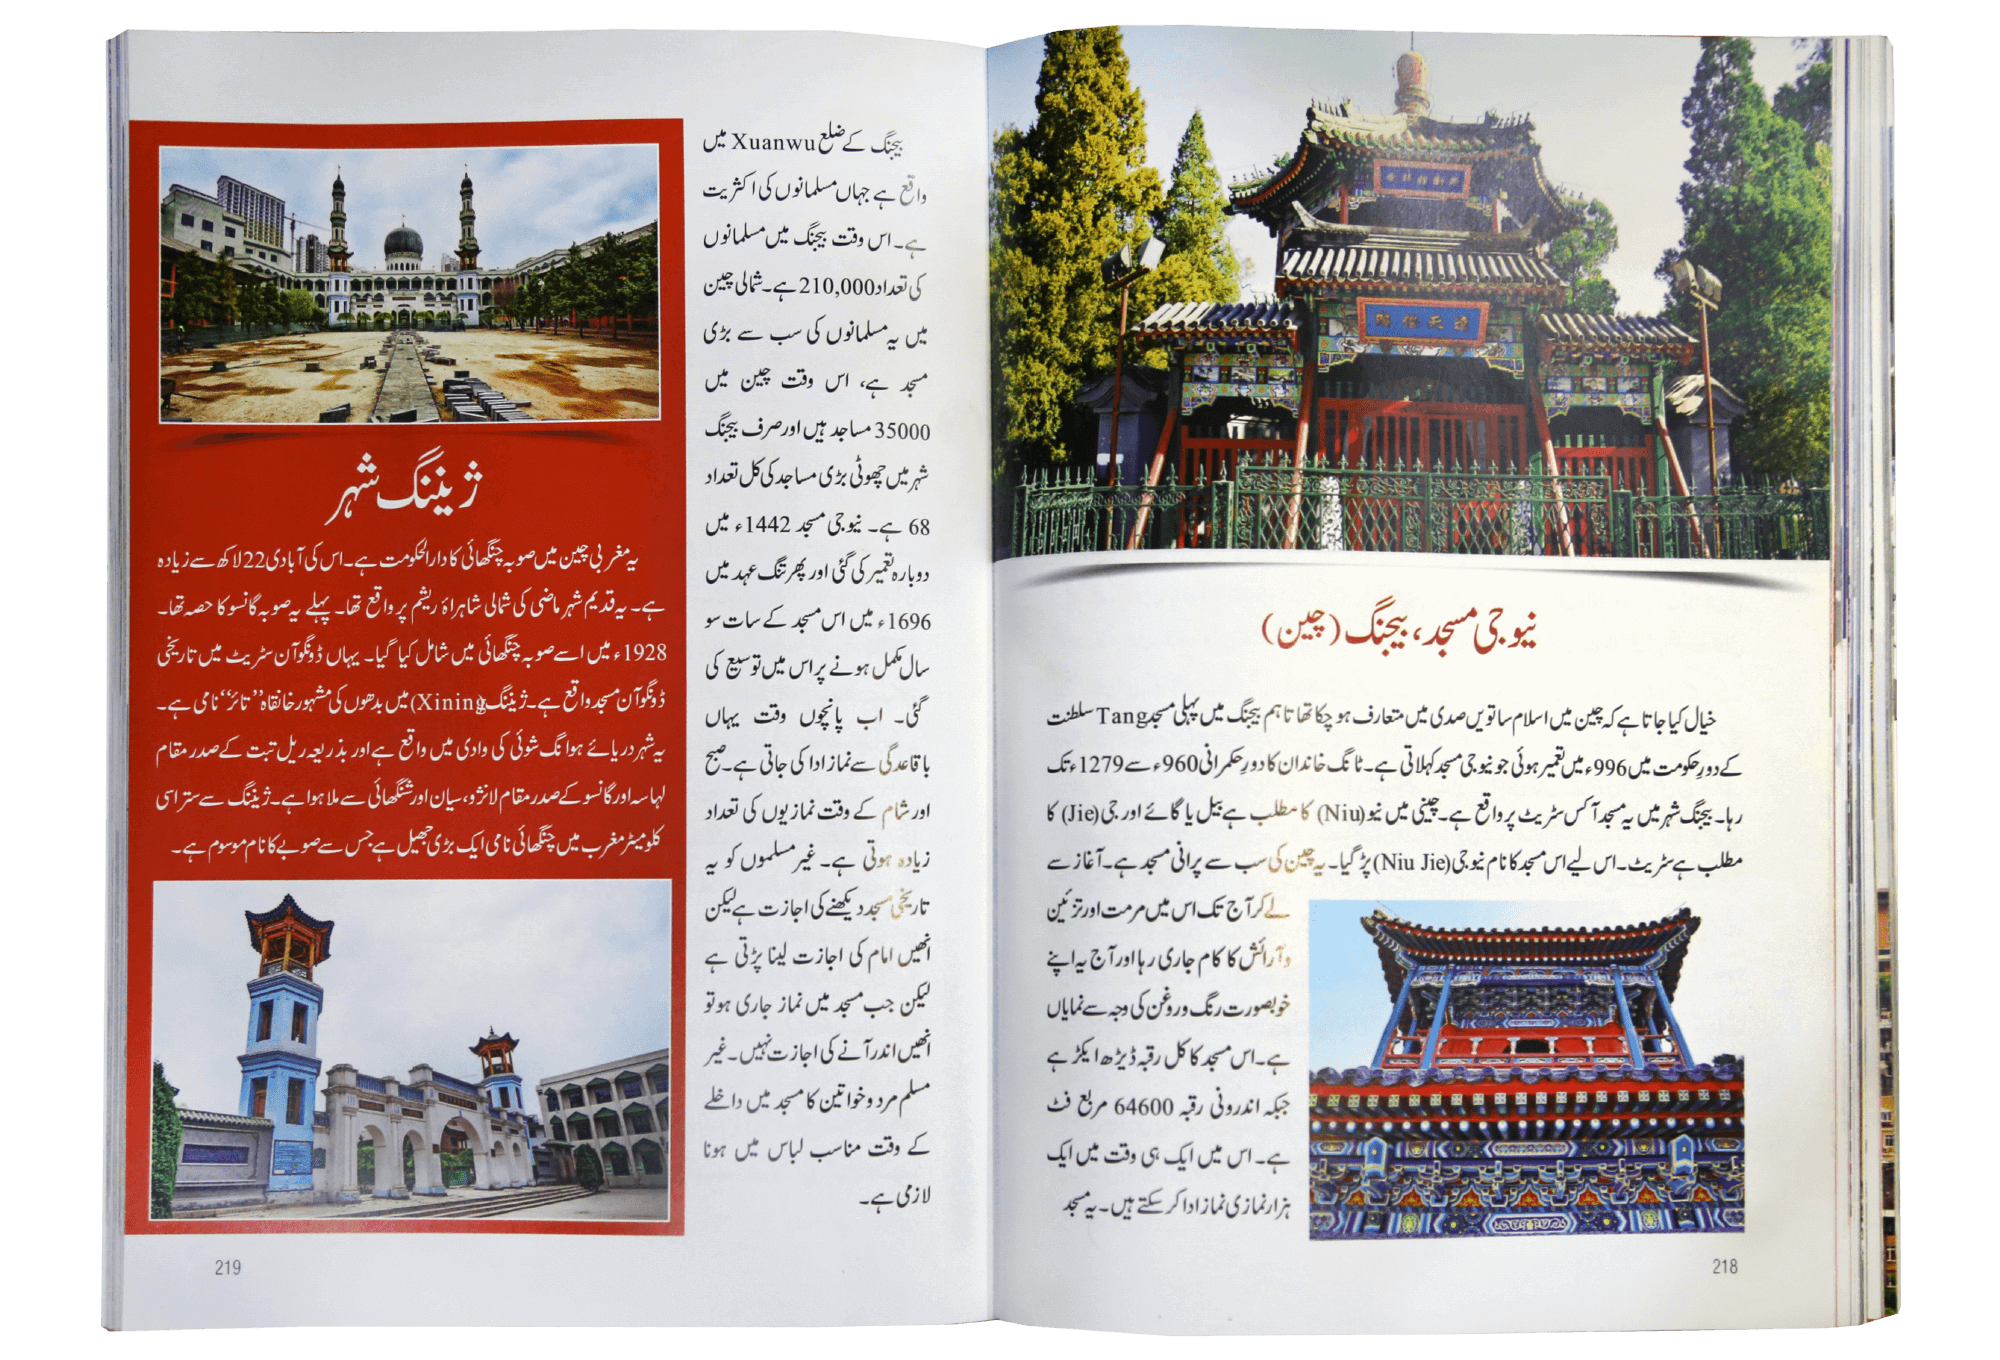 نیوجی مسجد، بیجنگ (چین)
خیال کیا جاتا ہے کہ چین میں اسلام ساتویں صدی میں متعارف ہو چکا تھا تاہم بیجنگ میں پہلی مسجد Tang سلطنت
کے دورِ حکومت میں 996ء میں تعمیر ہوئی جو نیوجی مسجد کہلاتی ہے۔ ٹانگ خاندان کا دورِ حکمرانی 960ء سے 1279ء تک
رہا۔ بیجنگ شہر میں یہ مسجد آکس سٹریٹ پر واقع ہے۔ چینی میں نیو (Niu) کا مطلب ہے بیل یا گائے اور جی (Jie) کا
مطلب ہے سٹریٹ۔ اس لیے اس مسجد کا نام نیوجی (Niu Jie) پڑ گیا۔ یہ چین کی سب سے پرانی مسجد ہے۔ آغاز سے
لے کر آج تک اس میں مرمت اور تزئین
و آرائش کا کام جاری رہا اور آج یہ اپنے
خوبصورت رنگ و روغن کی وجہ سے نمایاں
ہے۔ اس مسجد کا کل رقبہ ڈیڑھ ایکڑ ہے
جبکہ اندرونی رقبہ 64600 مربع فٹ
ہے۔ اس میں ایک ہی وقت میں ایک
ہزار نمازی نماز ادا کر سکتے ہیں۔ یہ مسجد
218
بیجنگ کے ضلع Xuanwu میں
واقع ہے جہاں مسلمانوں کی اکثریت
ہے۔ اس وقت بیجنگ میں مسلمانوں
کی تعداد 210,000 ہے۔ شمالی چین
میں یہ مسلمانوں کی سب سے بڑی
مسجد ہے، اس وقت چین میں
35000 مساجد ہیں اور صرف بیجنگ
شہر میں چھوٹی بڑی مساجد کی کل تعداد
68 ہے۔ نیوجی مسجد 1442ء میں
دوبارہ تعمیر کی گئی اور پھر تنگ عہد میں
1696ء میں اس مسجد کے سات سو
سال مکمل ہونے پر اس میں توسیع کی
گئی۔ اب پانچوں وقت یہاں
باقاعدگی سے نماز ادا کی جاتی ہے۔ صبح
اور شام کے وقت نمازیوں کی تعداد
زیادہ ہوتی ہے۔ غیر مسلموں کو یہ
تاریخی مسجد دیکھنے کی اجازت ہے لیکن
انھیں امام کی اجازت لینا پڑتی ہے
لیکن جب مسجد میں نماز جاری ہو تو
انھیں اندر آنے کی اجازت نہیں۔ غیر
مسلم مرد و خواتین کا مسجد میں داخلے
کے وقت مناسب لباس میں ہونا
لازمی ہے۔
ژیننگ شہر
یہ مغربی چین میں صوبہ چنگھائی کا دارالحکومت ہے۔ اس کی آبادی 22 لاکھ سے زیادہ
ہے۔ یہ قدیم شہر ماضی کی شمالی شاہراۂ ریشم پر واقع تھا۔ پہلے یہ صوبہ گانسو کا حصہ تھا۔
1928ء میں اسے صوبہ چنگھائی میں شامل کیا گیا۔ یہاں ڈونگوآن سٹریٹ میں تاریخی
ڈونگوآن مسجد واقع ہے۔ ژیننگ (Xining) میں بدھوں کی مشہور خانقاہ "تائر" نامی ہے۔
یہ شہر دریائے ہوانگ شوئی کی وادی میں واقع ہے اور بذریعہ ریل تبت کے صدر مقام
لہاسہ اور گانسو کے صدر مقام لانژو، سیان اور شنگھائی سے ملا ہوا ہے۔ ژیننگ سے ستر اسی
کلومیٹر مغرب میں چنگھائی نامی ایک بڑی جھیل ہے جس سے صوبے کا نام موسوم ہے۔
219